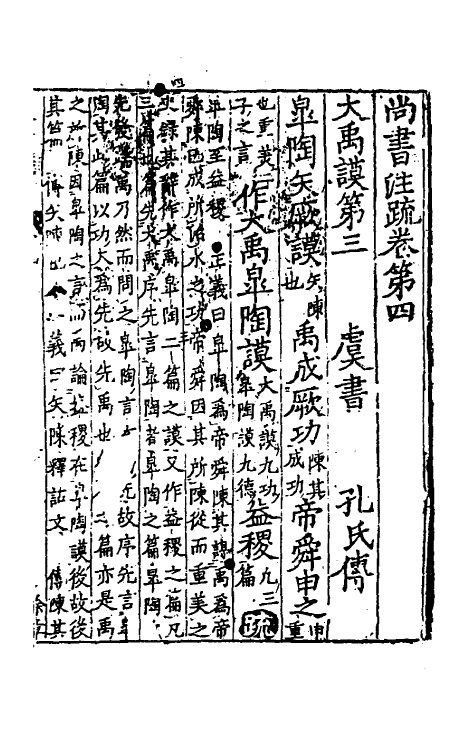 尚書注疏卷第四
大禹謨第三　虞書　孔氏傳
皐陶矢厥謨矢陳也禹成厥功陳其成功帝舜申之申重
也重美二子之言作大禹皐陶謨大禹謨九功皐陶謨九德益稷凡三篇疏
皐陶至益稷　正義曰皐陶為帝舜陳其謀禹為帝
舜陳已成所治水之功帝舜因其所陳從而重美之
史錄其辭作大禹皐陶二篇之謨又作益稷之篇凡
三篇也篇先大禹序先言皐陶者皐陶之篇皐陶
先發端禹乃然而問之皐陶言在禹先故序先言皐
陶其此篇以功大為先故先禹也益稷之篇亦是禹
之所陳因皐陶之言而禹論益稷在皐陶謨後故後
其篇　傳矢陳也　正義曰矢陳釋詁文　傳陳其